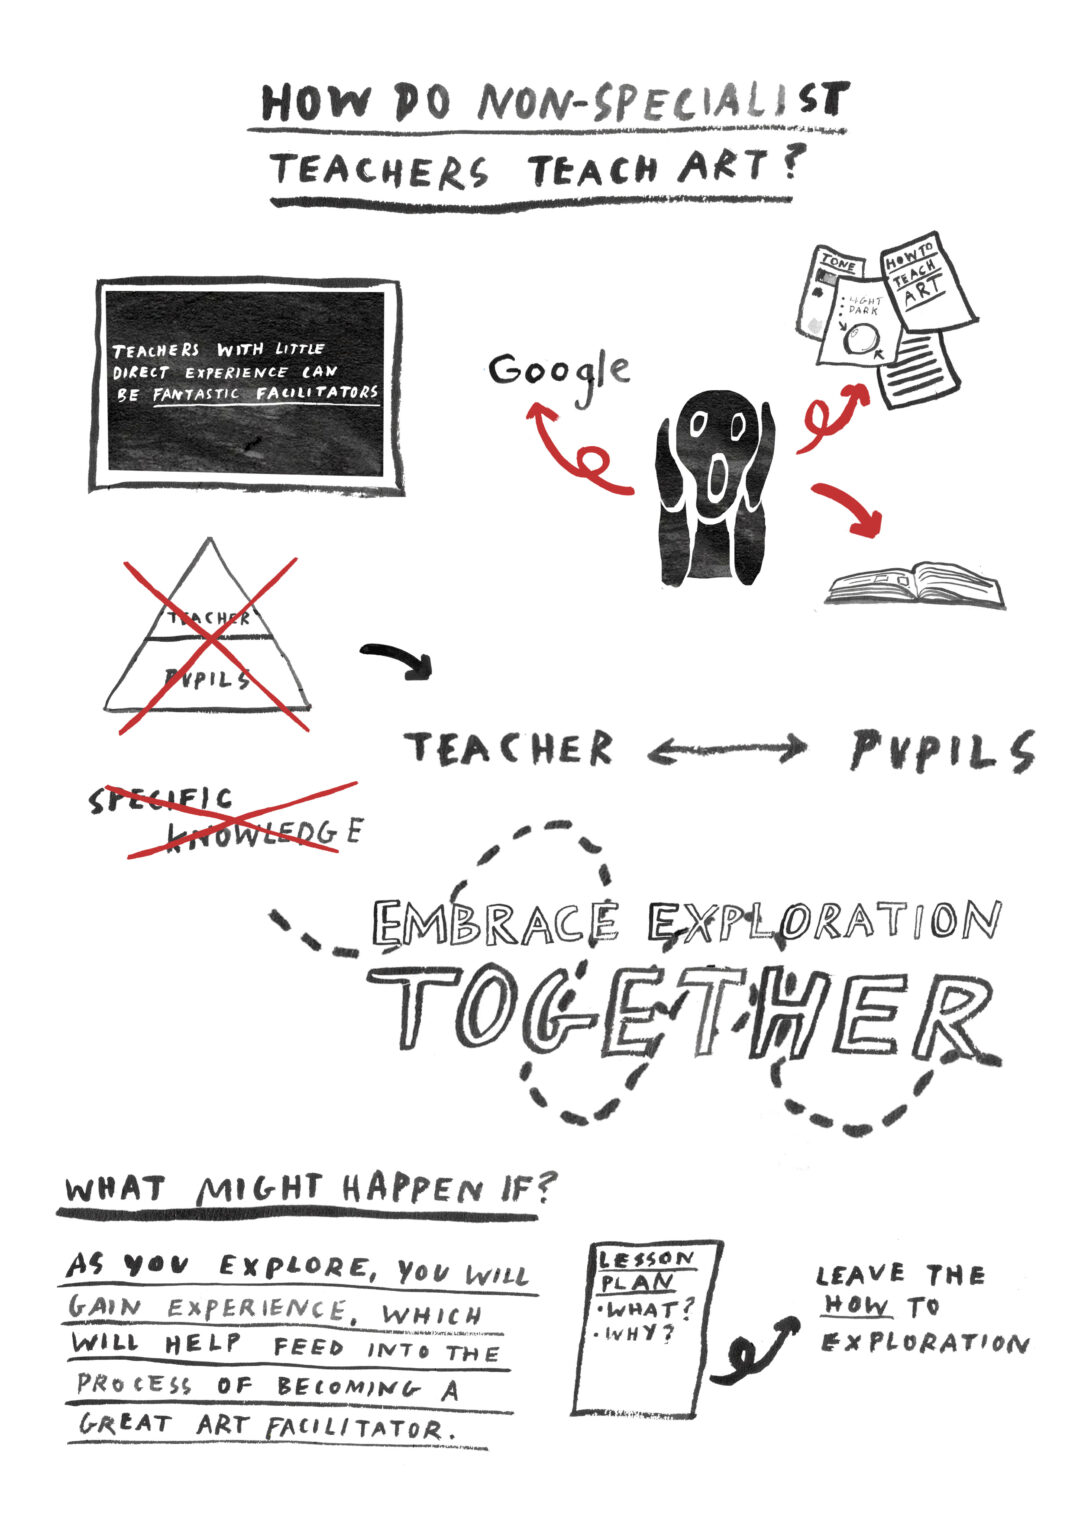 HOW DO NON-SPECIALIST
TEACHERS TEACH ART?
TEACHERS WITH LITTLE
DIRECT EXPERIENCE CAN
BE FANTASTIC FACILITATORS
Google
TONE
LIGHT
DARK
HOW TO
TEACH
ART
TEACHER
PUPILS
TEACHER
PUPILS
SPECIFIC
KNOWLEDGE
EMBRACE EXPLORATION
TOGETHER
WHAT MIGHT HAPPEN IF?
AS YOU EXPLORE, YOU WILL
GAIN EXPERIENCE, WHICH
WILL HELP FEED INTO THE
PROCESS OF BECOMING A
GREAT ART FACILITATOR.
LESSON
PLAN
•WHAT?
•WHY?
LEAVE THE
HOW TO
EXPLORATION